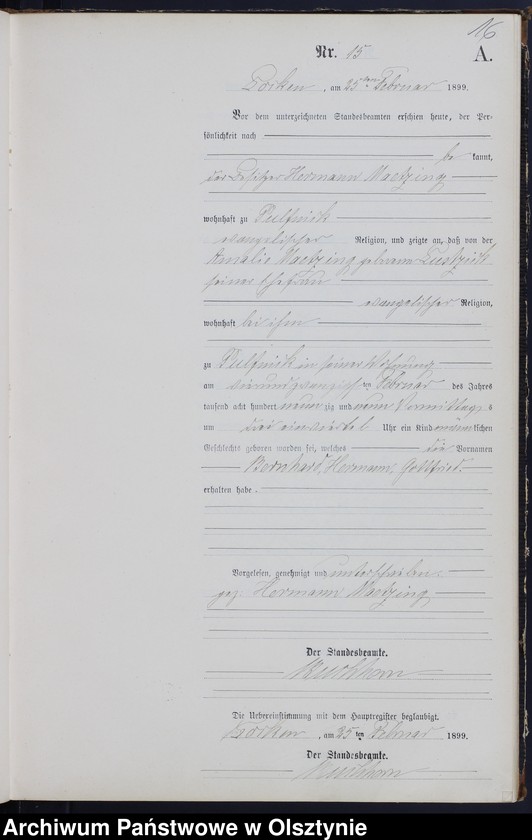 16
Nr. 15
A.
am 25ten Februar 1899.
Vor dem unterzeichneten Standesbeamten erschien heute, der Per-
sönlichkeit nach
be kannt,
der Besitzer Hermann Maetzing
wohnhaft zu Pulfnick
evangelischer Religion, und zeigte an, daß von der
Amalie Maetzing geborene
seiner Ehefrau
evangelischer Religion,
wohnhaft bei ihm
zu Pulfnick in seiner Wohnung
am vierundzwanzigsten Februar des Jahres
tausend acht hundert neun zig und neun Vormittags
um drei einviertel Uhr ein Kind männlichen
Geschlechts geboren worden sei, welches die Vornamen
Bernhard, Hermann, Gottfried
erhalten habe.
Vorgelesen, genehmigt und unterschrieben
gez. Hermann Maetzing
Der Standesbeamte.
Buchhorn
Die Uebereinstimmung mit dem Hauptregister beglaubigt.
am 25ten Februar 1899.
Der Standesbeamte.
Buchhorn
Archiwum Państwowe w Olsztynie